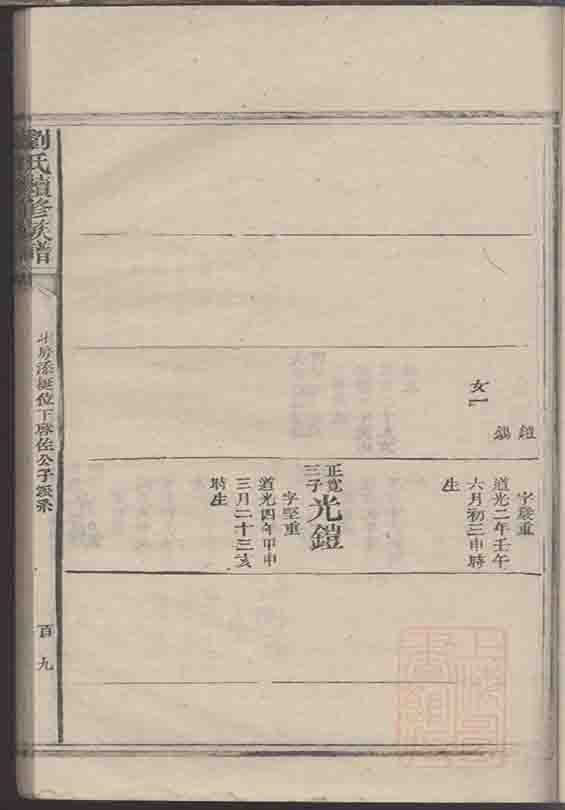 鎧
錫
女一
字嚴重
道光二年壬午
六月初三申時
生
正寬
三子
光鎧
字堅重
道光四年甲申
三月二十三亥
時生
劉氏續修族譜
位下啓佐公子派系
百九